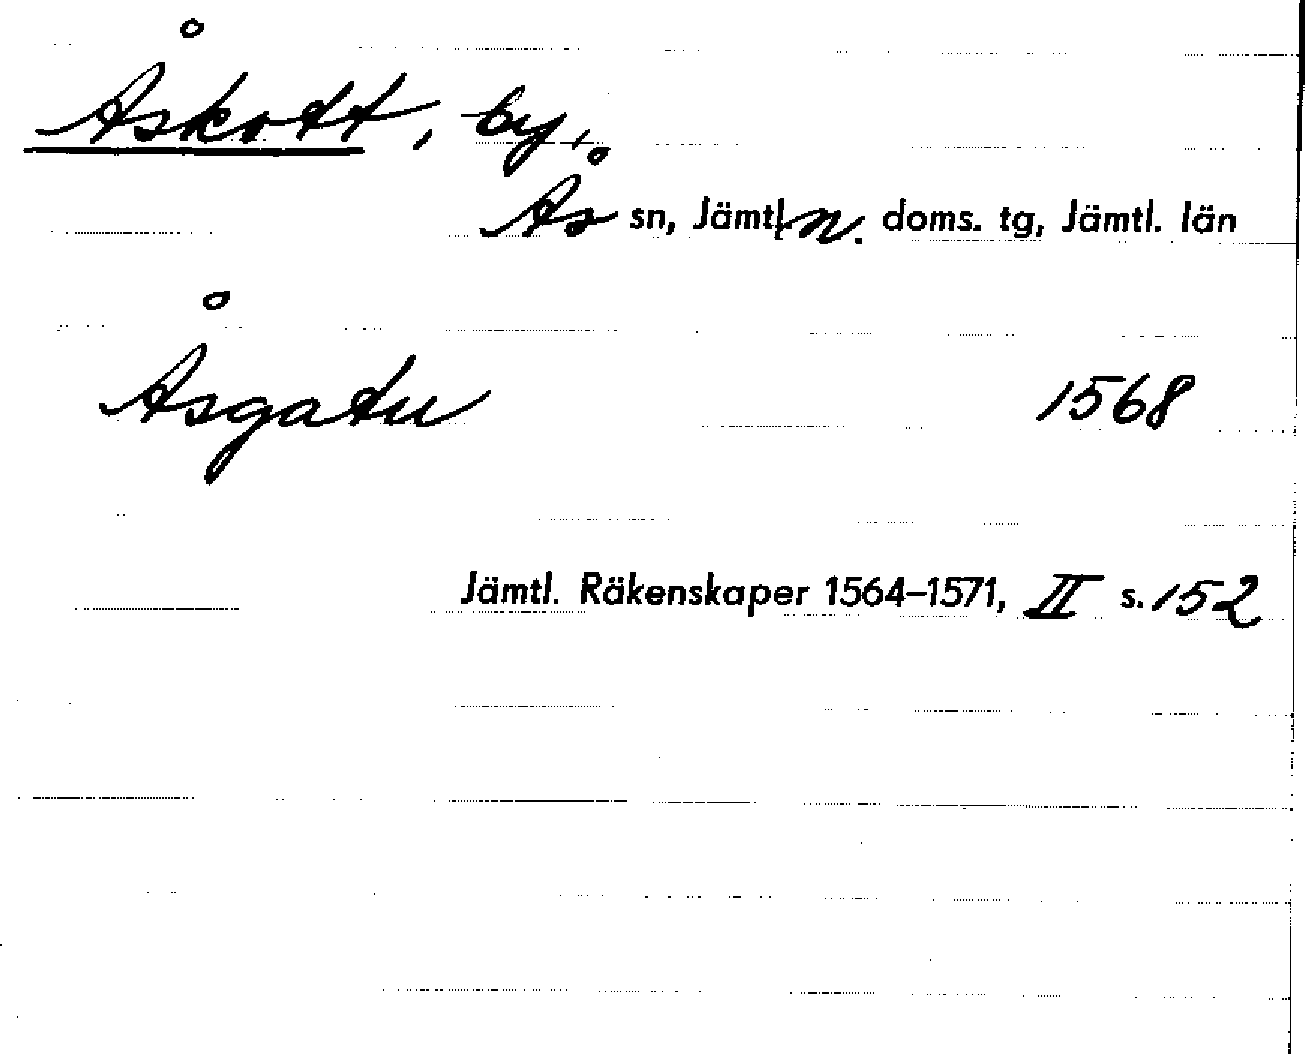 Åskott, by,
Ås sn, Jämtl n. doms. tg, Jämtl. län
Åsgatu 1568
Jämtl. Räkenskaper 1564–1571, II s. 152